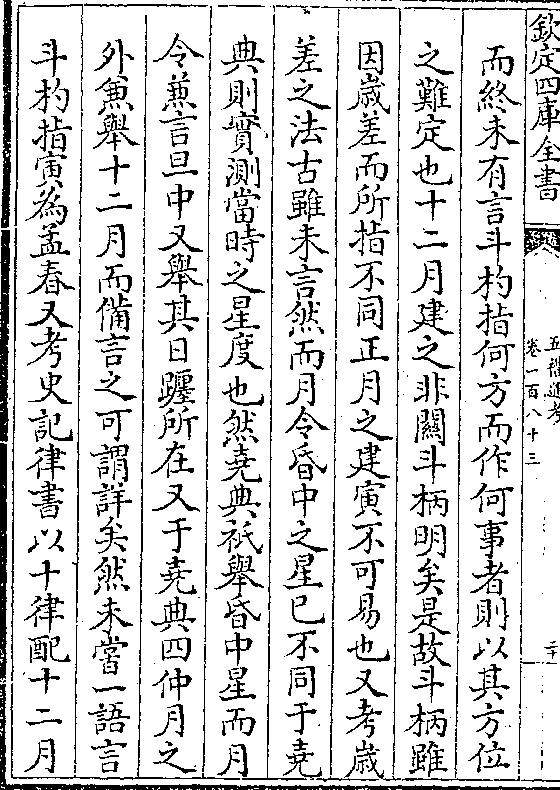 欽定四庫全書
五禮通考
卷一百八十三
而終未有言斗杓指何方而作何事者則以其方位
之難定也十二月建之非關斗柄明矣是故斗柄雖
因歲差而所指不同正月之建寅不可易也又考歲
差之法古雖未言然而月令昏中之星已不同于堯
典則實測當時之星度也然堯典祗舉昏中星而月
令蕪言旦中又舉其日躔所在又于堯典四仲月之
外兼舉十二月而備言之可謂詳矣然未嘗一語言
斗杓指寅為孟春又考史記律書以十律配十二月